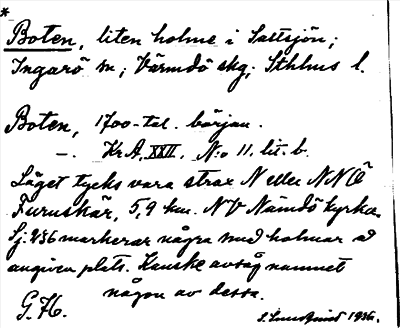 *
Boten, liten holme i Saltsjön;
Ingarö sn; Värmdö skg; Sthlms l.
Boten, 1700-tal. början.
—. Kr.A. XXII. N:o 11. lit. b.
Läget tycks vara strax N eller NNÖ
Furuskär, 5,9 km. NV Nämdö kyrka.
Sj. 236 markerar några små holmar å
angiven plats. Kanske avsåg namnet
någon av dessa.
G. Hg. 1936.